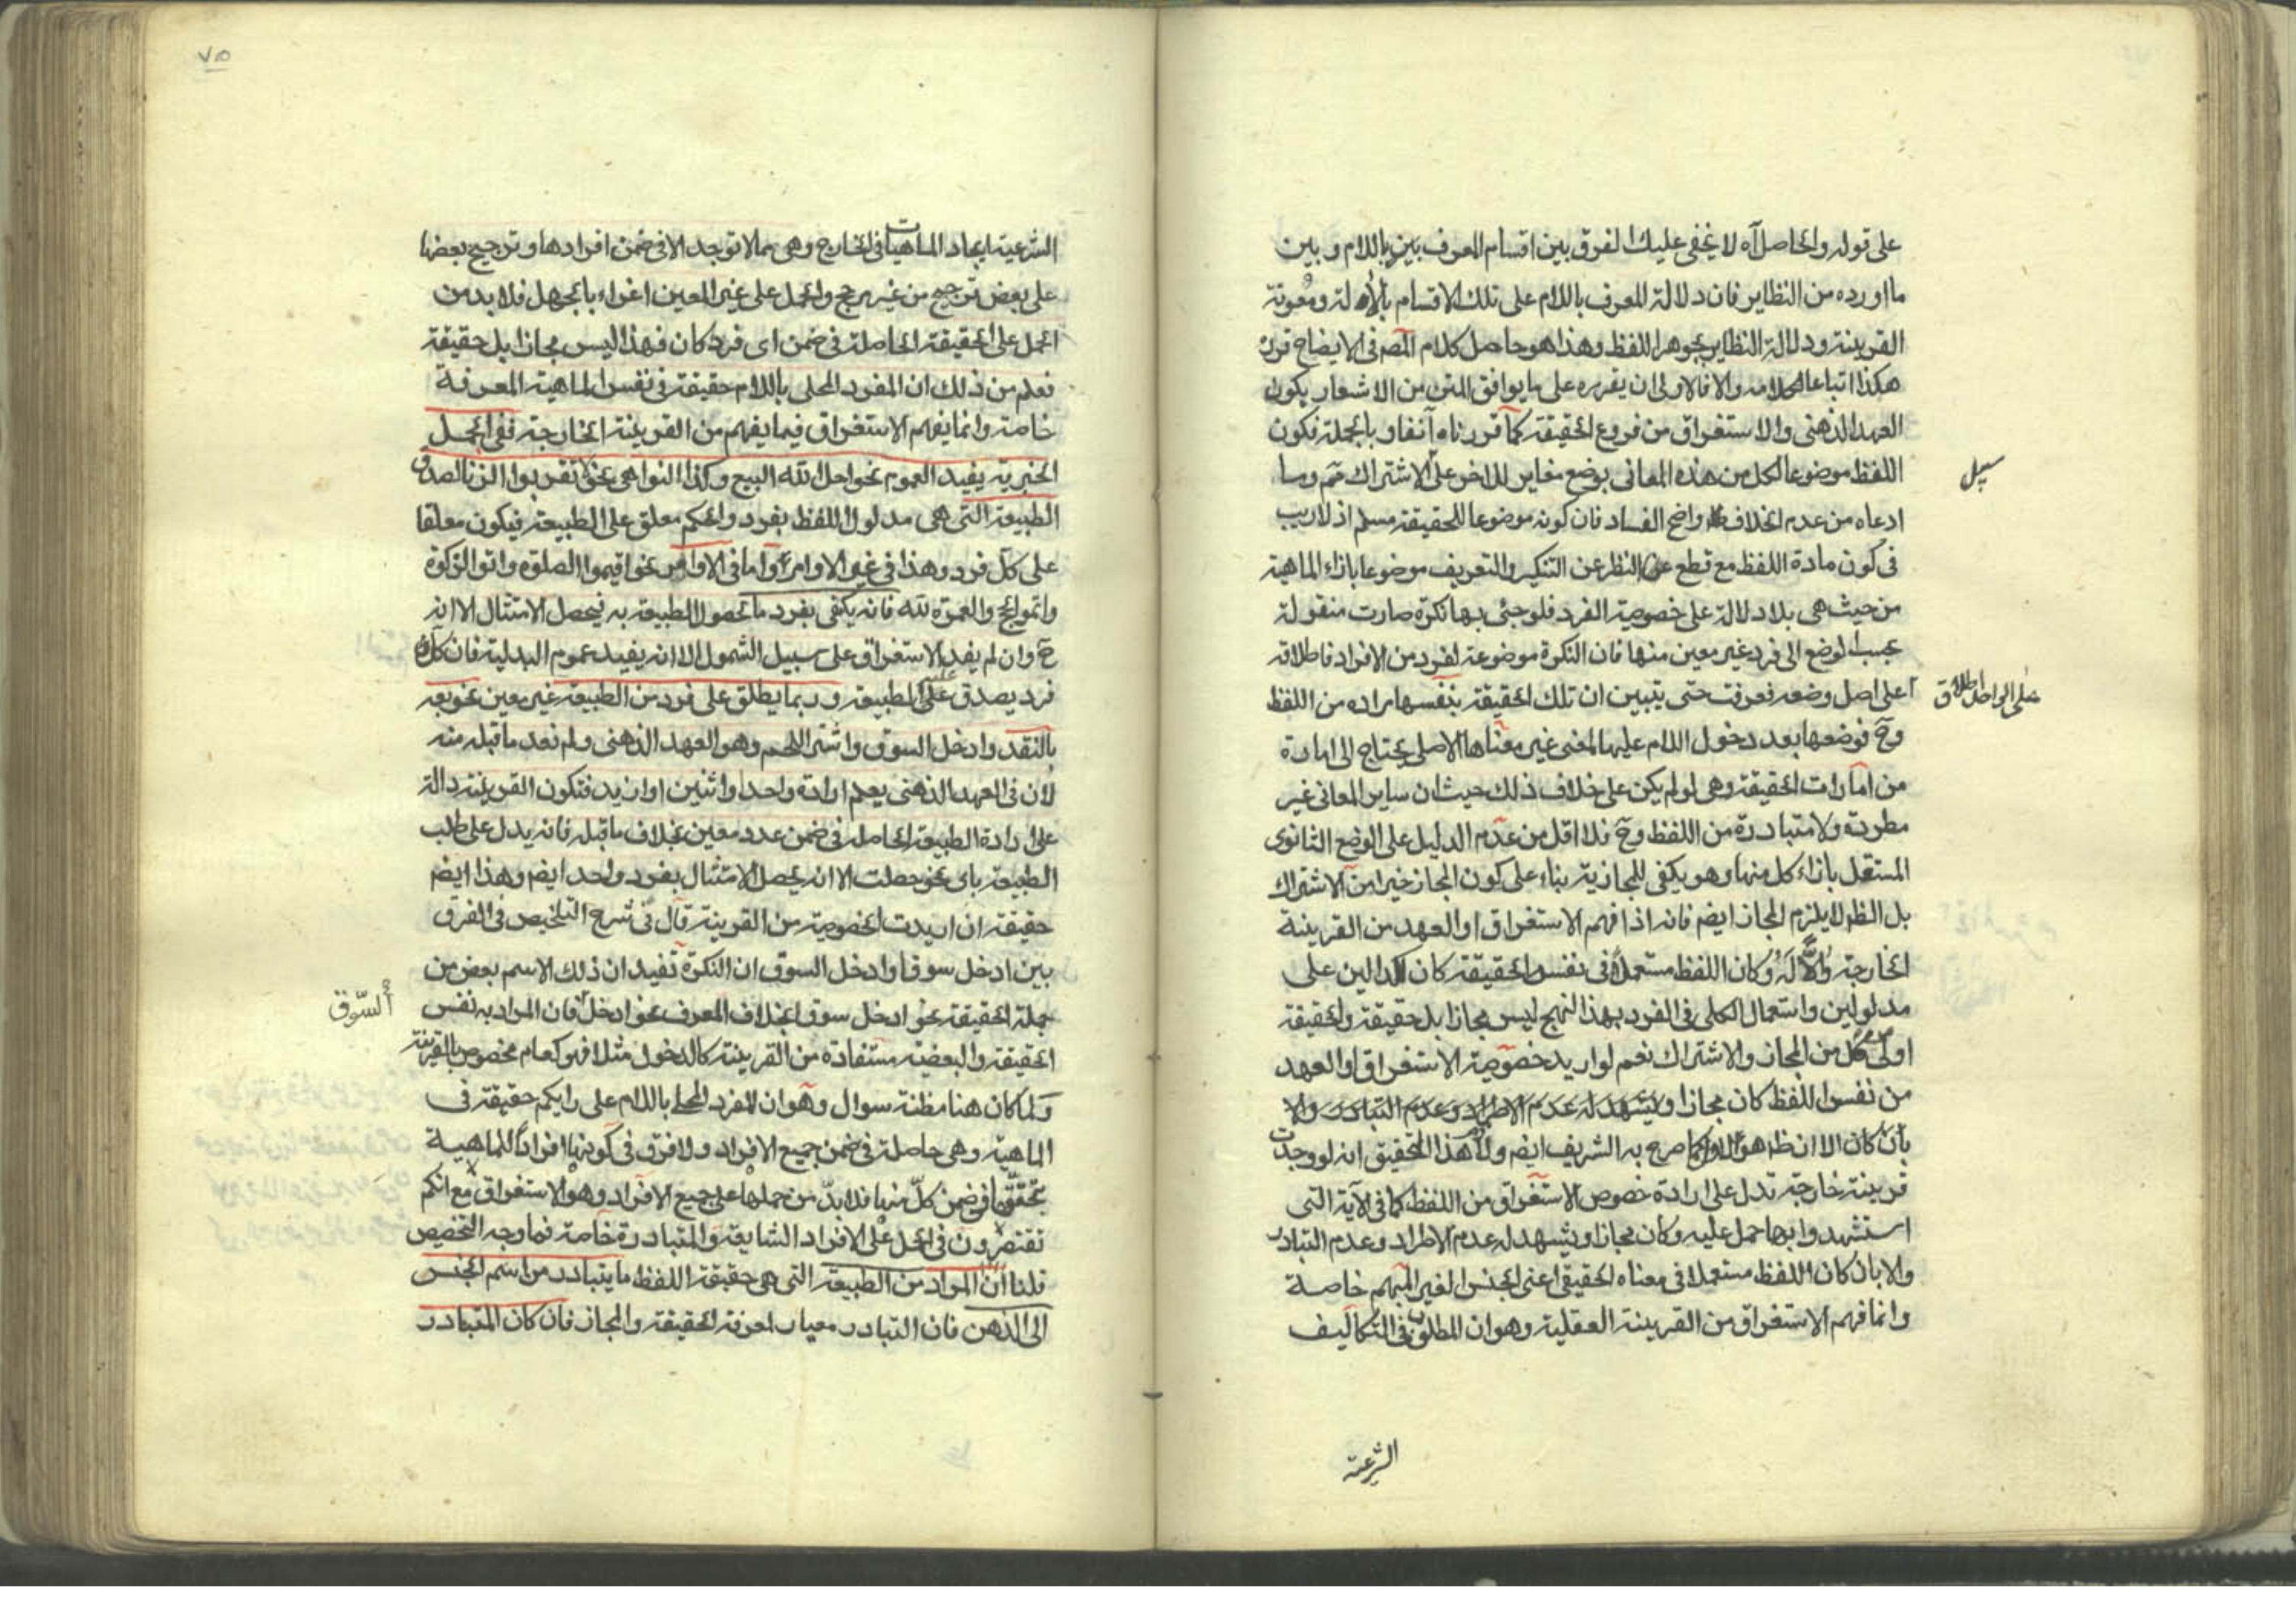 على قوله والحاصل آه لا يخفى عليك الفرق بين اقسام المعرف باللام وبين
ما اورده من النظاير فان دلالة المعرف باللام على تلك الاقسام ومعونة
القرينة ودلالة النظاير بجوهر اللفظ وهذا هو حاصل كلام المصم فى الايضاح قرره
هكذا اتباعا لكلامه والا فالاولى ان يقرره على ما يوافق المتن من الاشعار بكون
العهد الذهنى والاستغراق من فروع الحقيقة كما قررناه آنفا وبالجملة فكون
اللفظ موضوعا لكل من هذه المعانى بوضع مغاير للاخر على الاشتراك مم وما
سبيل
ادعاه من عدم الخلاف واضح الفساد فان كونه موضوعا للحقيقة مسلم اذ لا ريب
فى كون مادة اللفظ مع قطع النظر عن التنكير والتعريف موضوعا بازاء الماهية
من حيث هى بلا دلالة على خصوصية الفرد فلو جئ بها نكرة صارت منقولة
بحسب الوضع الى فرد غير معين منها فان النكرة موضوعة لفرد من الافراد فاطلاقه
على الواحد اطلاق
على اصل وضعه فعرفت حتى يتبين ان تلك الحقيقة بنفسها مراده من اللفظ
وح فوضعها بعد دخول اللام عليها لمعنى غير معناها الاصلى يحتاج الى امارة
من امارات الحقيقة وهى لو لم يكن على خلاف ذلك حيث ان ساير المعانى غير
مطردة ولا متبادرة من اللفظ وح فلا اقل من عدم الدليل على الوضع الثانوى
المستقل بازاء كل منها وهو يكفى للمجازية بناء على كون المجاز خيرا من الاشتراك
بل الظم لا يلزم المجاز ايضم فانه اذا فهم الاستغراق او العهد من القرينة
الخارجة وكان اللفظ مستعملا فى نفس الحقيقة كان كدالين على
مدلولين واستعمال الكلى فى الفرد بهذا النهج ليس مجازا بل حقيقة والحقيقة
اولى من كل من المجاز والاشتراك نعم لو اريد خصوصية الاستغراق او العهد
من نفس اللفظ كان مجازا ويشهد له عدم الاطراد وعدم التبادر والا
بان كان الا ان ظم هو الاول كما صرح به الشريف ايضم هذا التحقيق انه لو وجدت
قرينة خارجة تدل على ارادة خصوص الاستغراق من اللفظ كما فى الآية التى
استشهدوا بها حمل عليه وكان مجازا ويشهد له عدم الاطراد وعدم التبادر
والا بان كان اللفظ مستعملا فى معناه الحقيقى اعنى الجنس لغير المبهم خاصة
وانما فهم الاستغراق من القرينة العقلية وهو ان المطلوب فى التكاليف
الشرعية
٧٥
الشرعية ايجاد الماهيات فى الخارج وهى مما لا توجد الا فى ضمن افرادها وترجيح بعضها
على بعض ترجيح من غير مرجح والحمل على غير المعين اغراء بالجهل فلا بد من
الحمل على الحقيقة الحاصلة فى ضمن اى فرد كان فهذا ليس مجازا بل حقيقة
فعلم من ذلك ان المفرد المحلى باللام حقيقة فى نفس الماهية المعرفة
خاصة وانما يفهم الاستغراق فيما يفهم من القرينة الخارجة ففى الجمل
الخبرية يفيد العموم نحو احل الله البيع وكذا النواهى نحو لا تقربوا الزنا لصدق
الطبيعة التى هى مدلول اللفظ بفرد والحكم معلق على الطبيعة فيكون معلقا
على كل فرد وهذا فى غير الاوامر واما فى الاوامر نحو اقيموا الصلوة واتوا الزكوة
واتموا الحج والعمرة لله فانه يكفى بفرد ما لحصول الطبيعة به فيحصل الامتثال الا انه
ح وان لم يفد الاستغراق على سبيل الشمول الا انه يفيد عموم البدلية فان كل
فرد يصدق عليه الطبيعة وربما يطلق على فرد من الطبيعة غير معين نحو بعه
بالنقد وادخل السوق واشتر اللحم وهو العهد الذهنى ولم نعد ما قبله منه
لان فى العهد الذهنى يعلم ارادة واحد او اثنين او ازيد فتكون القرينة دالة
على ارادة الطبيعة الحاصلة فى ضمن عدد معين بخلاف ما قبله فانه يدل على طلب
الطبيعة باى نحو حصلت الا انه يحصل الامتثال بفرد واحد ايضم وهذا ايضم
حقيقة ان اريدت الخصوصية من القرينة قال فى شرح التلخيص فى الفرق
بين ادخل سوقا وادخل السوق ان النكرة تفيد ان ذلك الاسم بعض من
جملة الحقيقة نحو ادخل سوقا بخلاف المعرف نحو ادخل فان المراد به نفس
السّوق
الحقيقة والبعضية مستفادة من القرينة كالدخول مثلا فهو كعام مخصوص بالقرينة
ولما كان هنا مظنة سوال وهو ان المفرد المحلى باللام على رايكم حقيقة فى
الماهية وهى حاصلة فى ضمن جميع الافراد ولا فرق فى كونها افرادا للماهية
تحققها فى ضمن كل منها فلا بدّ من حملها على جميع الافراد وهو الاستغراق مع انكم
تقتصرون فى الحمل على الافراد الشايعة والمتبادرة خاصة فما وجه التخصيص
قلنا ان المراد من الطبيعة التى هى حقيقة اللفظ ما يتبادر من اسم الجنس
الى الذهن فان التبادر معيار لمعرفة الحقيقة والمجاز فان كان المتبادر